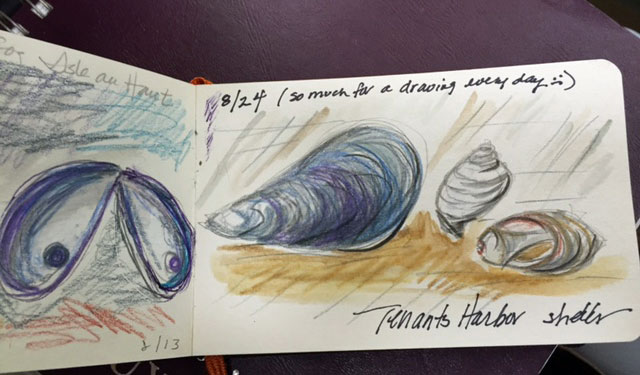 for Isle au Haut
8/13
8/24 (so much for a drawing every day :()
Tenants Harbor shells